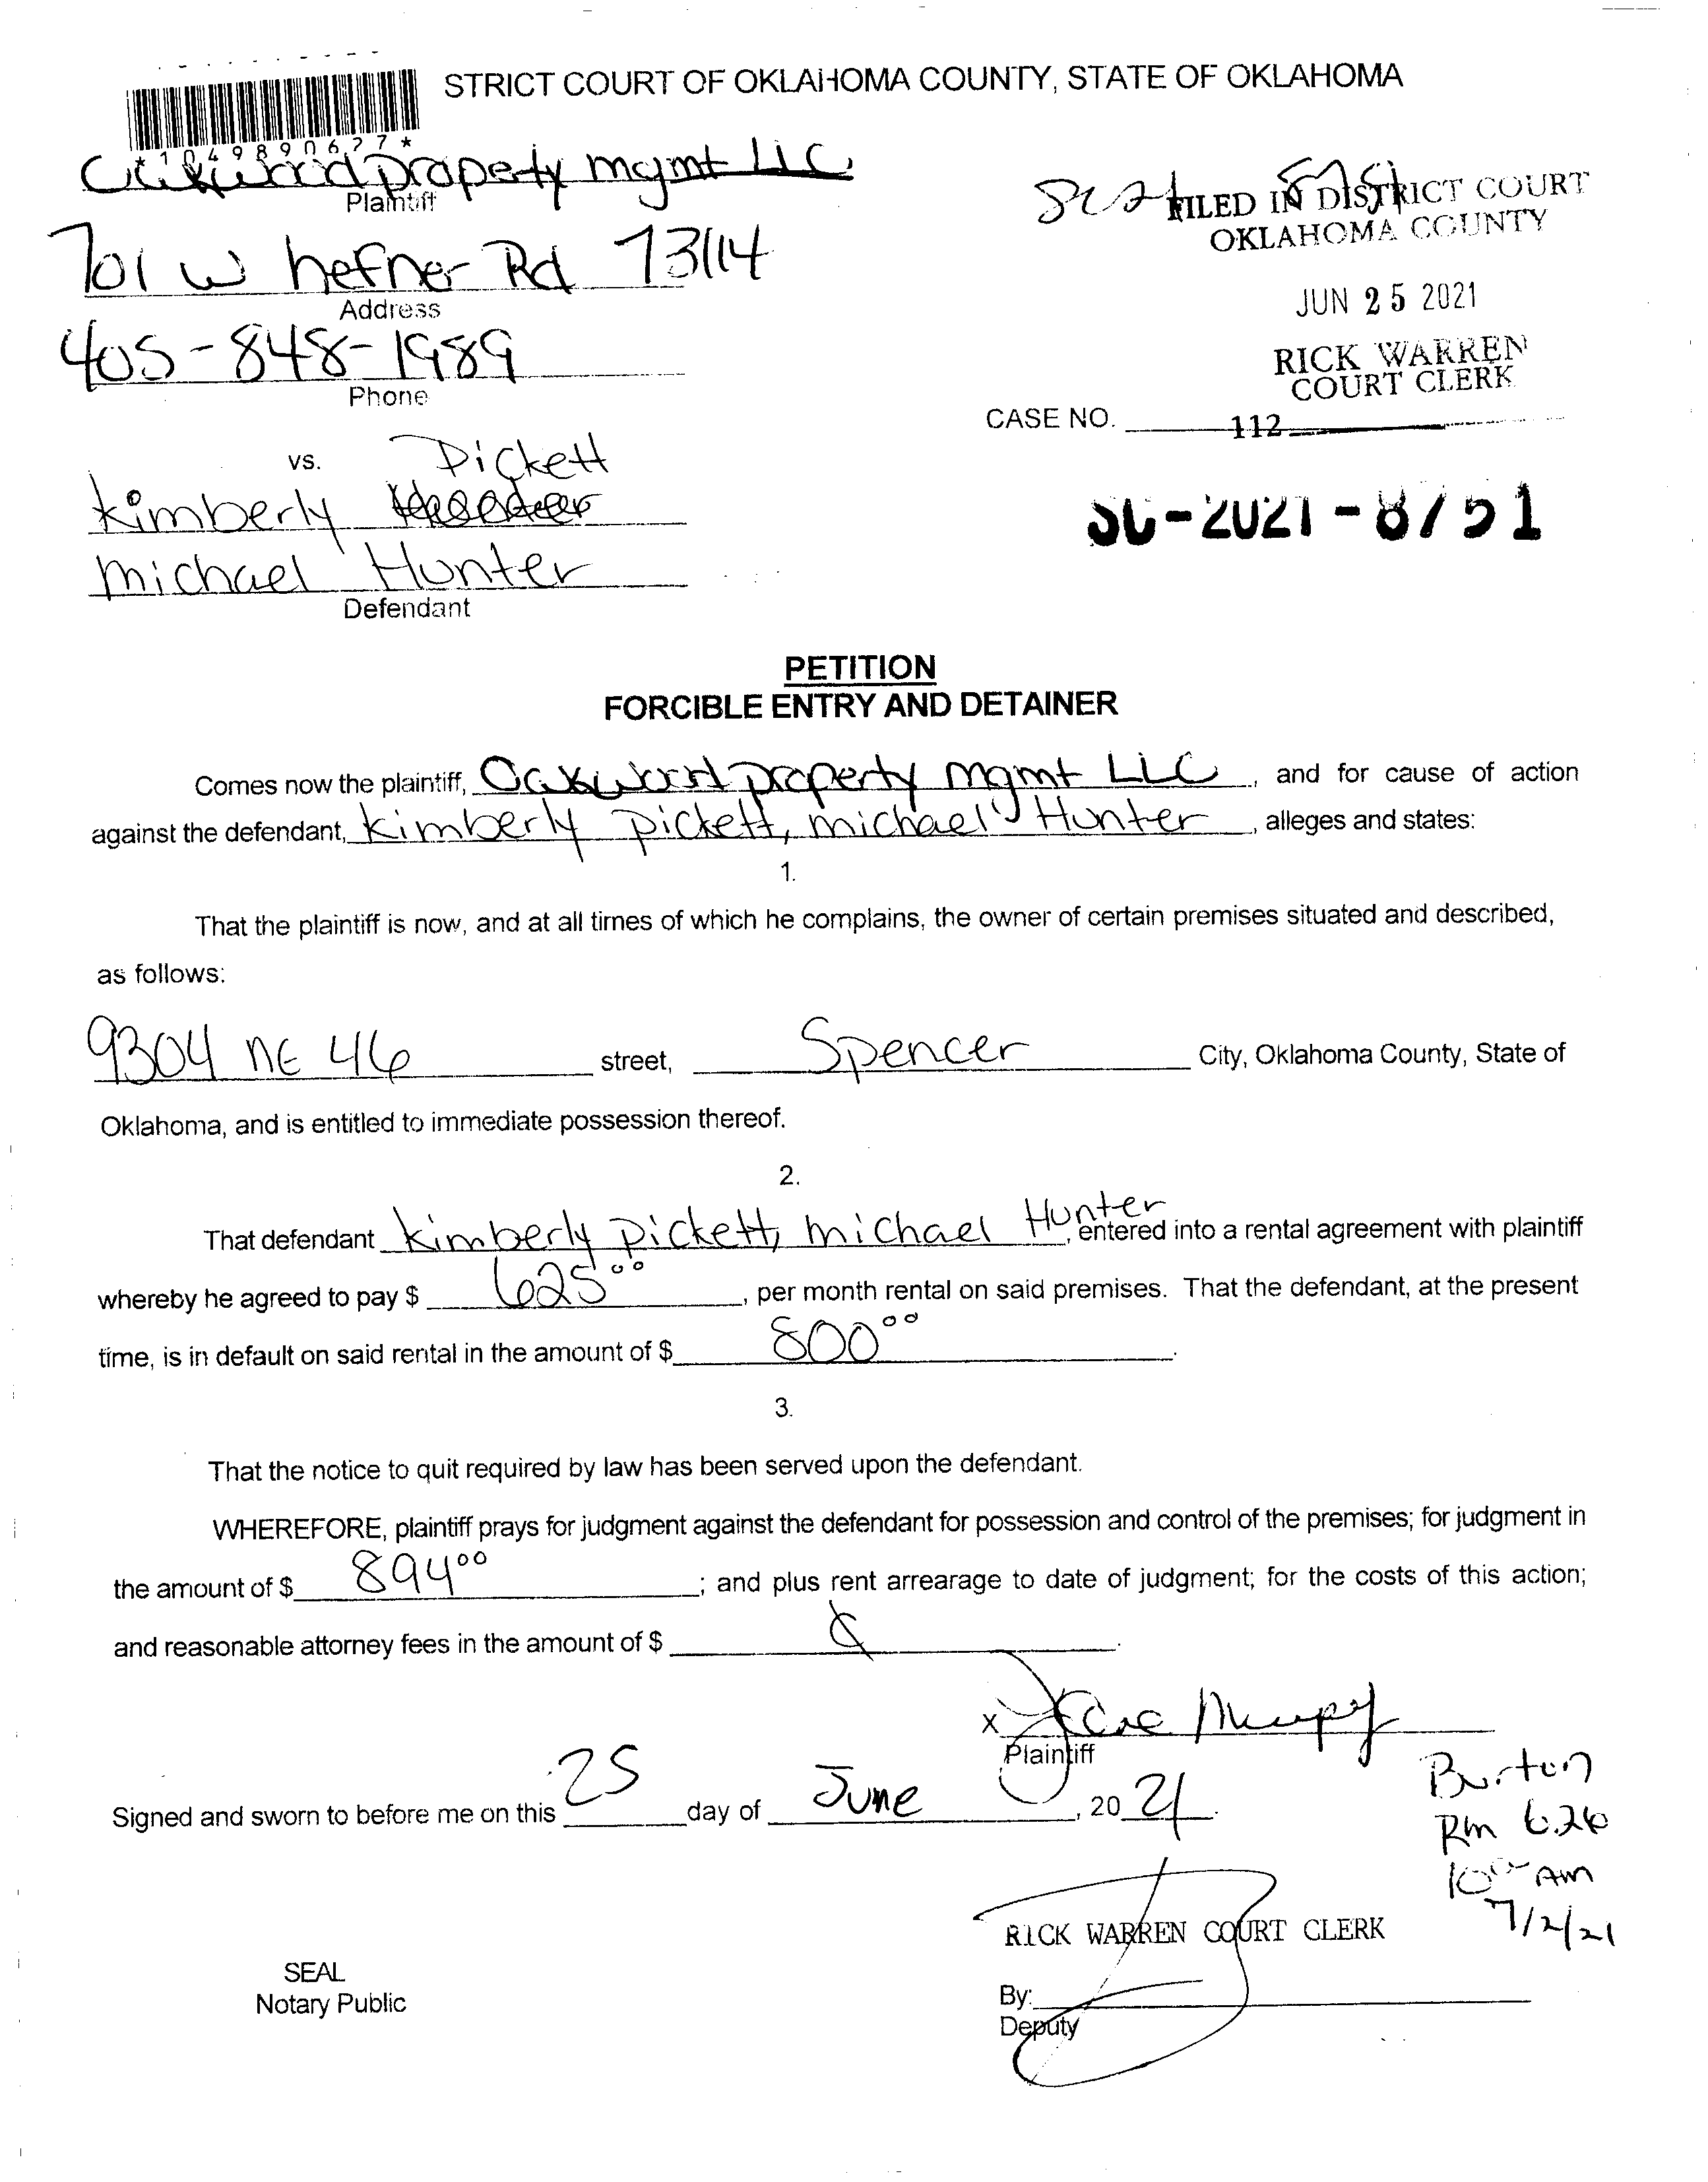 STRICT COURT OF OKLAHOMA COUNTY, STATE OF OKLAHOMA
*1049890677*
Oakwood property mgmt LLC
Plaintiff
701 W hefner Rd 73114
Address
405-848-1989
Phone
FILED IN DISTRICT COURT
OKLAHOMA COUNTY
JUN 25 2021
RICK WARREN
COURT CLERK
CASE NO.
112
SC-2021-8751
vs. Pickett
Kimberly
michael Hunter
Defendant
PETITION
FORCIBLE ENTRY AND DETAINER
Comes now the plaintiff, Oakwood property mgmt LLC, and for cause of action
against the defendant, Kimberly pickett, michael Hunter, alleges and states:
1.
That the plaintiff is now, and at all times of which he complains, the owner of certain premises situated and described,
as follows:
9304 NE 46 street, Spencer City, Oklahoma County, State of
Oklahoma, and is entitled to immediate possession thereof.
2.
That defendant Kimberly pickett, michael Hunter, entered into a rental agreement with plaintiff
whereby he agreed to pay $ 625.00, per month rental on said premises. That the defendant, at the present
time, is in default on said rental in the amount of $ 800.00.
3.
That the notice to quit required by law has been served upon the defendant.
WHEREFORE, plaintiff prays for judgment against the defendant for possession and control of the premises; for judgment in
the amount of $ 894.00; and plus rent arrearage to date of judgment; for the costs of this action;
and reasonable attorney fees in the amount of $
X
Plaintiff
Signed and sworn to before me on this 25 day of June, 2021.
Burton
Rm 626
10:00 AM
7/2/21
RICK WARREN COURT CLERK
SEAL
Notary Public
By:
Deputy